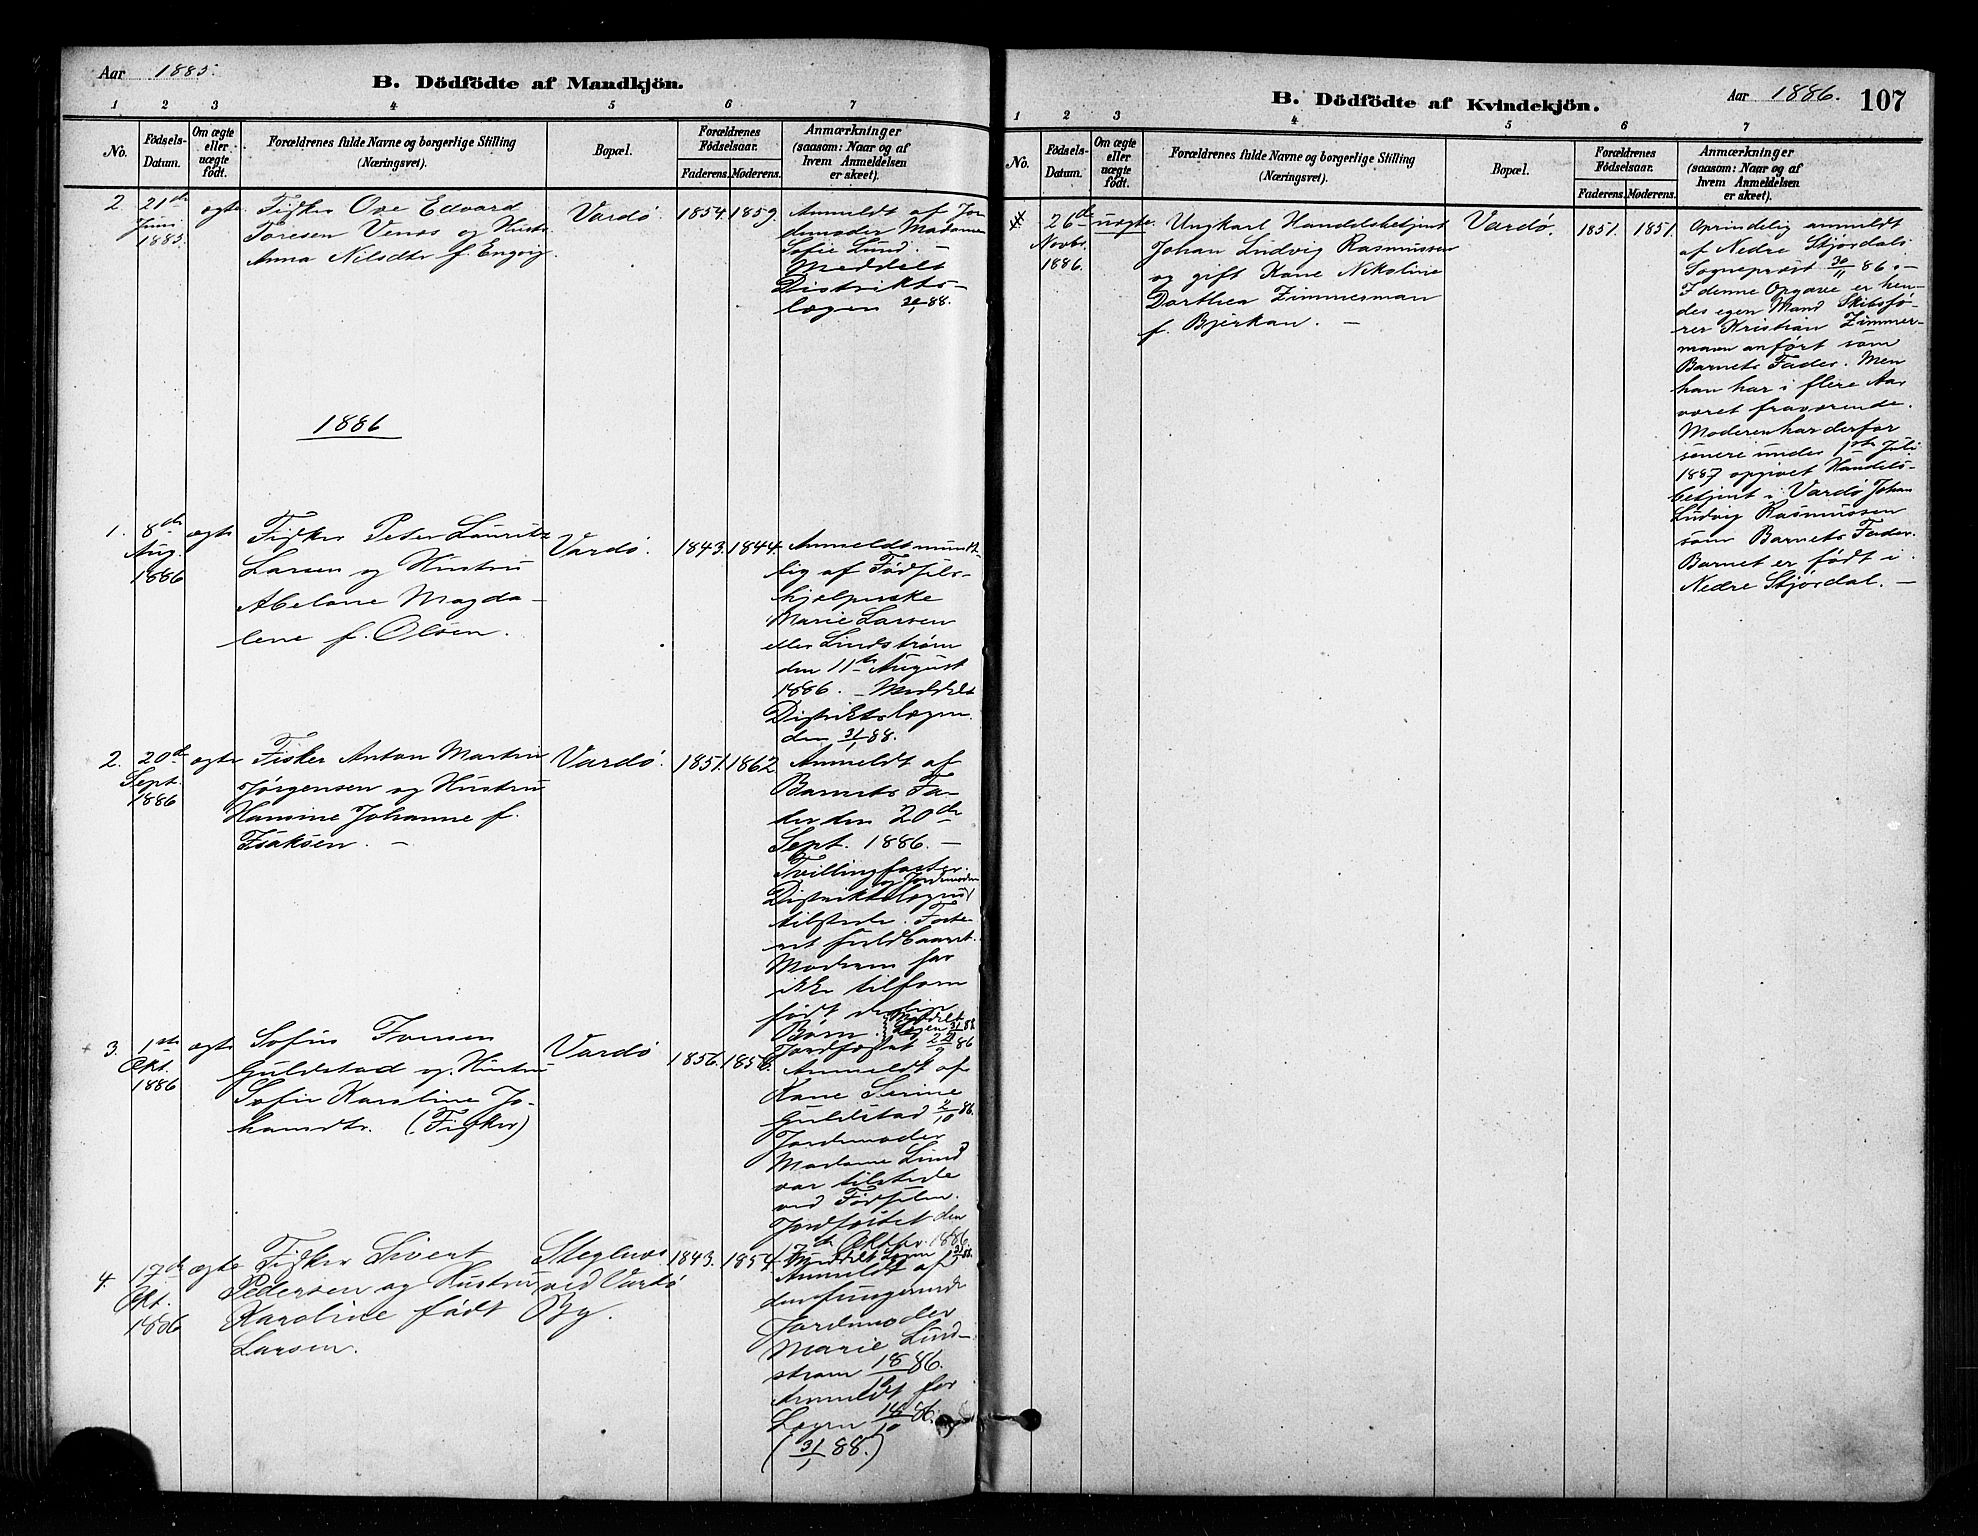 Aar 1885.
B. Dödfödte af Mandkjön.
1 2 3 4 5 6 7
No.
Födsels-
Datum.
Om ægte
eller
uægte
födt.
Forældrenes fulde Navne og borgerlige Stilling
(Næringsvei).
Bopæl.
Forældrenes
Födselsaar.
Faderens. Moderens.
Anmærkninger
(saasom: Naar og af
hvem Anmeldelsen
er skeet).
2. 21de
Juni
1885.
ægte
Fisker Ove Edvard
Toresen Venås og Hustr.
Anna Nilsdtr f. Engvig.
Vardø. 1854. 1859.
Anmeldt af Jor-
demoder Madame
Sofie Lund. —
Meddelt
Distrikts-
lægen 30/1 88.
1886
1. 8de
Aug.
1886
ægte
Fisker Peter Lauritz
Larsen og Hustru
Abelone Magda-
lene f. Olsen.
Vardø. 1843. 1844.
Anmeldt mundt-
lig af Fødsels-
hjelperske
Marie Larsen
eller Lindstrøm
den 11te August
1886. — Meddelt
Distriktslægen
den 31/1 88.
2. 20de
Sept.
1886
ægte
Fisker Anton Martin
Jørgensen og Hustru
Hansine Johanne f.
Isaksen. —
Vardø. 1851. 1862
Anmeldt af
Barnets Fa-
der den 20de
Sept. 1886. —
Tvillingfoster.
og Jordemoder
Distriktslægen
tilstede. Foste-
ret fuldbaaret.
Moderen har
ikke tilforn
født
Børn. Meddelt
Lægen 31/1 88
Jordfæstet 86
3. 1ste
Okt.
1886
ægte
Sofus Iversen
Guldstad og Hustru
Sofie Karoline Jo-
hansdtr. (Fisker)
Vardø 1856. 1856.
Anmeldt af
Kone Serine
Guldstad 2/10 86.
Jordemoder
Madame Lund
var tilstede
ved Fødselen.
Jordfæstet den
7de Oktbr. 1886.
Meddelt Lægen 31/1 88.
4. 17de
Okt.
1886
ægte
Fisker Sivert
Pedersen og Hustru
Karoline født
Larsen.
Steglnæs
ved Vardø
By.
1843. 1854.
Anmeldt af
den fungerende
Jordemoder
Marie Lind-
strøm 18/10 86.
Anmeldt for
Lægen 18/10 86.
(31/1 88.)
B. Dödfödte af Kvindekjön.
Aar 1886. 107
1 2 3 4 5 6 7
No.
Födsels-
Datum.
Om ægte
eller
uægte
födt.
Forældrenes fulde Navne og borgerlige Stilling
(Næringsvei).
Bopæl.
Forældrenes
Födselsaar.
Faderens. Moderens.
Anmærkninger
(saasom: Naar og af
hvem Anmeldelsen
er skeet).
26de
Novbr.
1886.
uægte.
Ungkarl Handelsbetjent
Johan Ludvig Rasmussen
og gift Kone Nikoline
Dorthea Zimmerman
f. Bjerkan. —
Vardø. 1851. 1851.
Oprindelig anmeldt
af Nedre Stjørdals
Sogneprest 30/11 86. —
I denne Opgave er hen-
des egen Mand Skibsfø-
rer Kristian Zimmer-
mann anført som
Barnets Fader. Men
han har i flere Aar
været fraværende.
Moderen har derfor
senere under 1ste Juli
1887 opgivet Handels-
betjent i Vardø Johan
Ludvig Rasmussen
som Barnets Fader.
Barnet er født i
Nedre Stjørdal. —